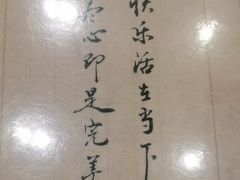 快乐活在当下
尽心即是完美